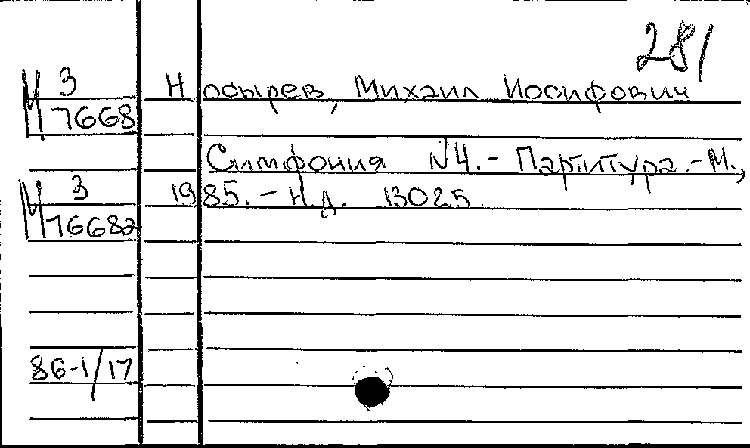 281
М 3 Носырев, Михаил Иосифович
7668
Симфония №4.- Партитура.-М.,
М 3 1985.-Н.д. 13025
7668а
86-1/17